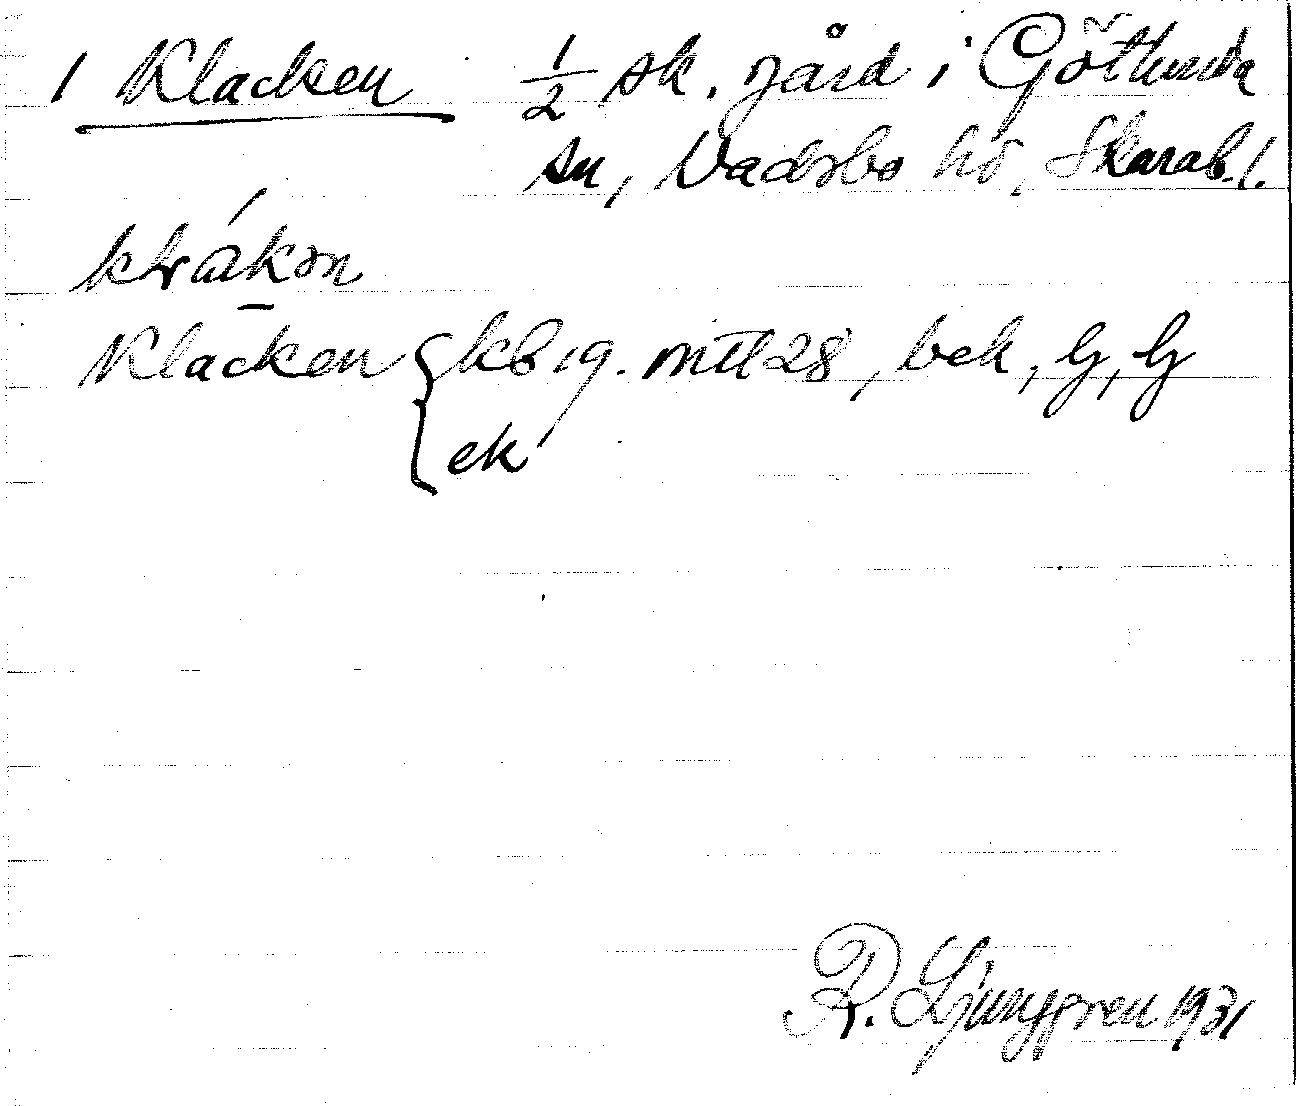 1 Klacken 1/2 sk. gård i Götlunda
sn, Vadsbo hd, Skarab. l.
Klacken { kb 19. mtl 28, bek, Lj, Lj
ek
R. Ljunggren 1931